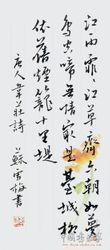 江雨霏〻江草齊六朝如夢
鳥空啼無情最是臺城柳
依舊煙籠十里堤
唐人韋莊詩
梅書